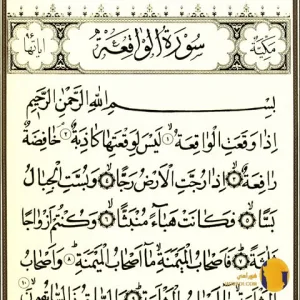 مكية
سورة الواقعة
٩٦ آياتها
بسم الله الرحمن الرحيم
إذا وقعت الواقعة ١ ليس لوقعتها كاذبة ٢ خافضة
رافعة ٣ إذا رجت الأرض رجا ٤ وبست الجبال
بسا ٥ فكانت هباء منبثا ٦ وكنتم أزواجا
ثلاثة ٧ فأصحاب الميمنة ما أصحاب الميمنة ٨ وأصحاب